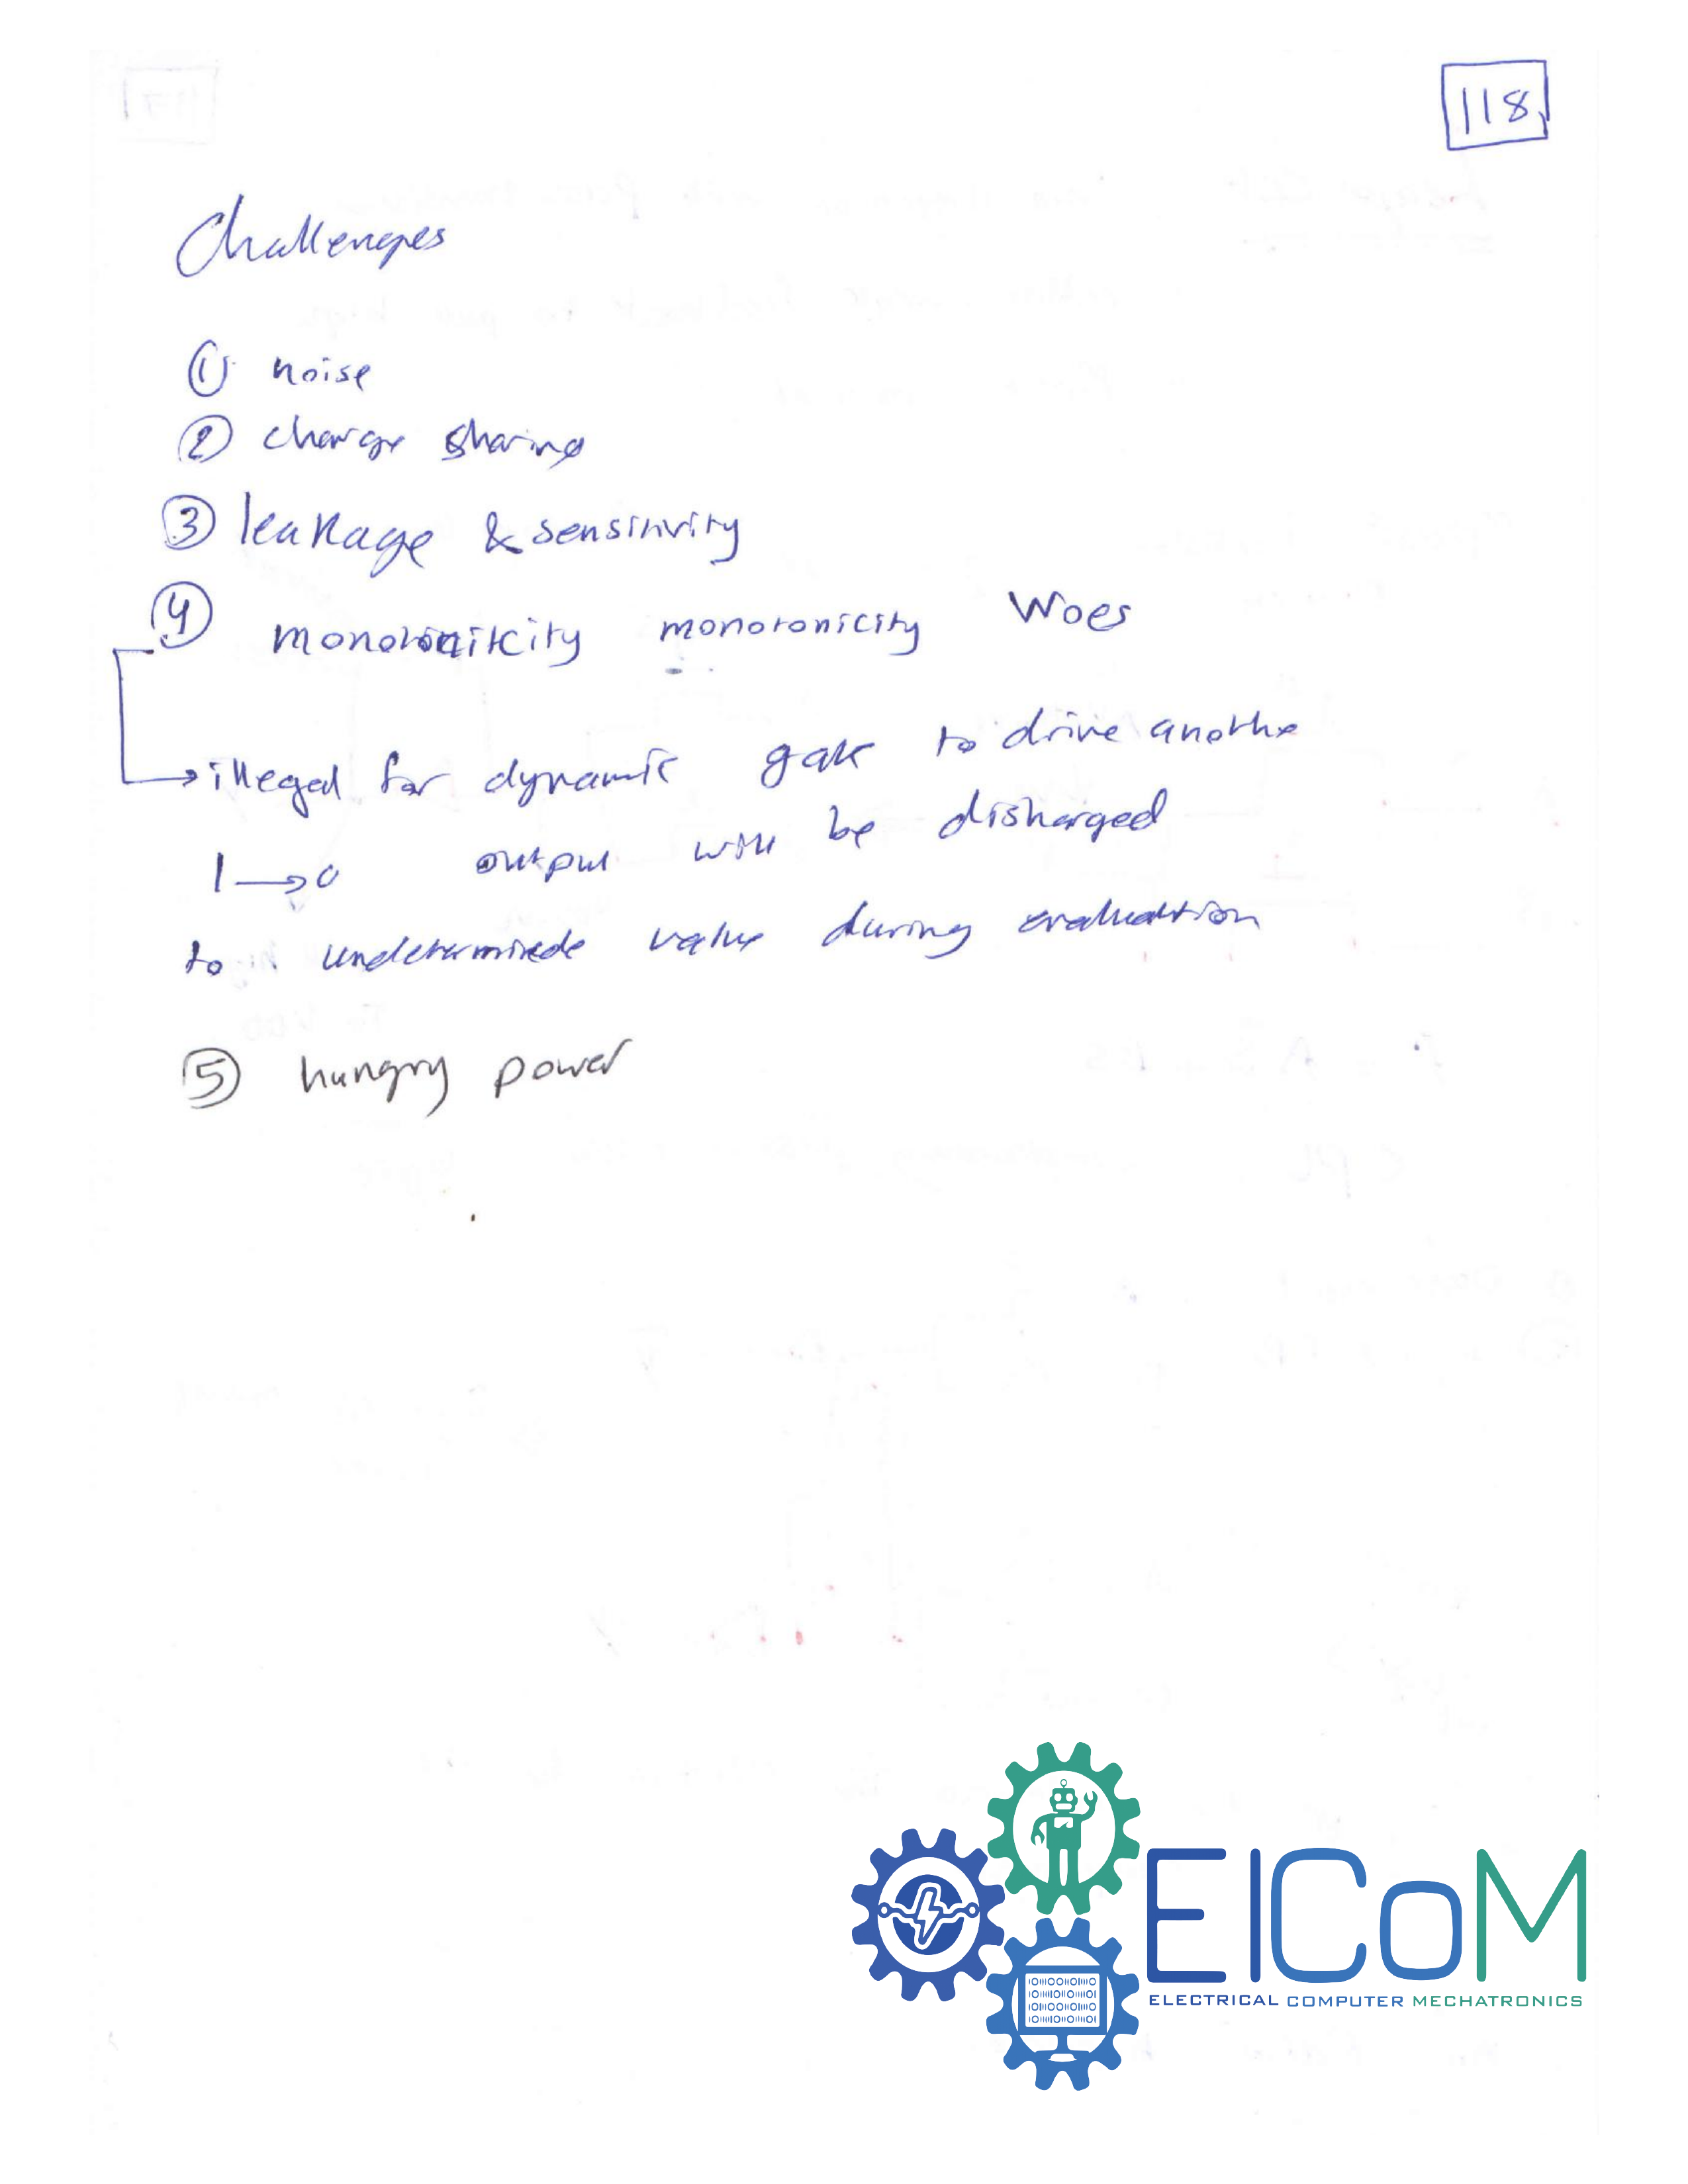 118
Challenges
① noise
② charge sharing
③ leakage & sensitivity
④ monotonicity monotonicity Woes
→ illegal for dynamic gate to drive another
1 → 0 output will be disharged
to undetermined value during evaluation
⑤ hungry power
EICoM
ELECTRICAL COMPUTER MECHATRONICS